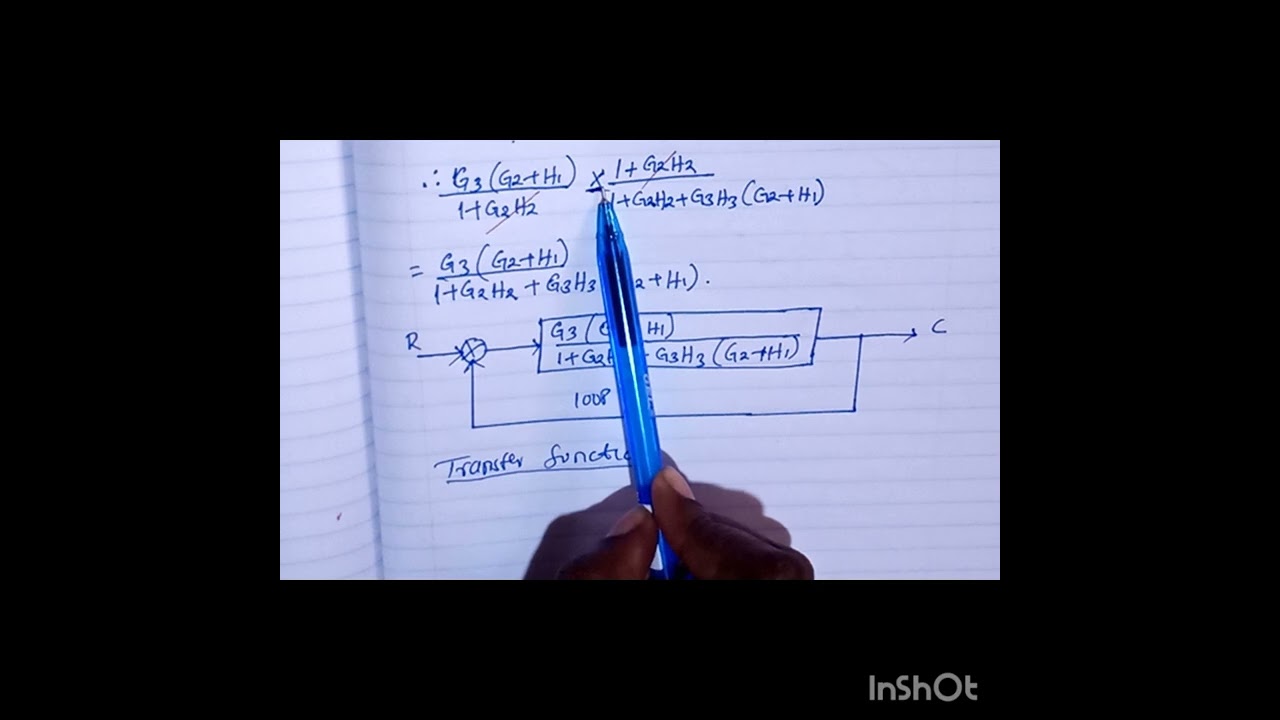 ∴ G3(G2+H1) × 1+G2H2
1+G2H2 1+G2H2+G3H3(G2+H1)
= G3(G2+H1)
1+G2H2 + G3H3 2+H1).
R G3( H1) C
1+G2 G3H3(G2+H1)
Transfer
InShOt